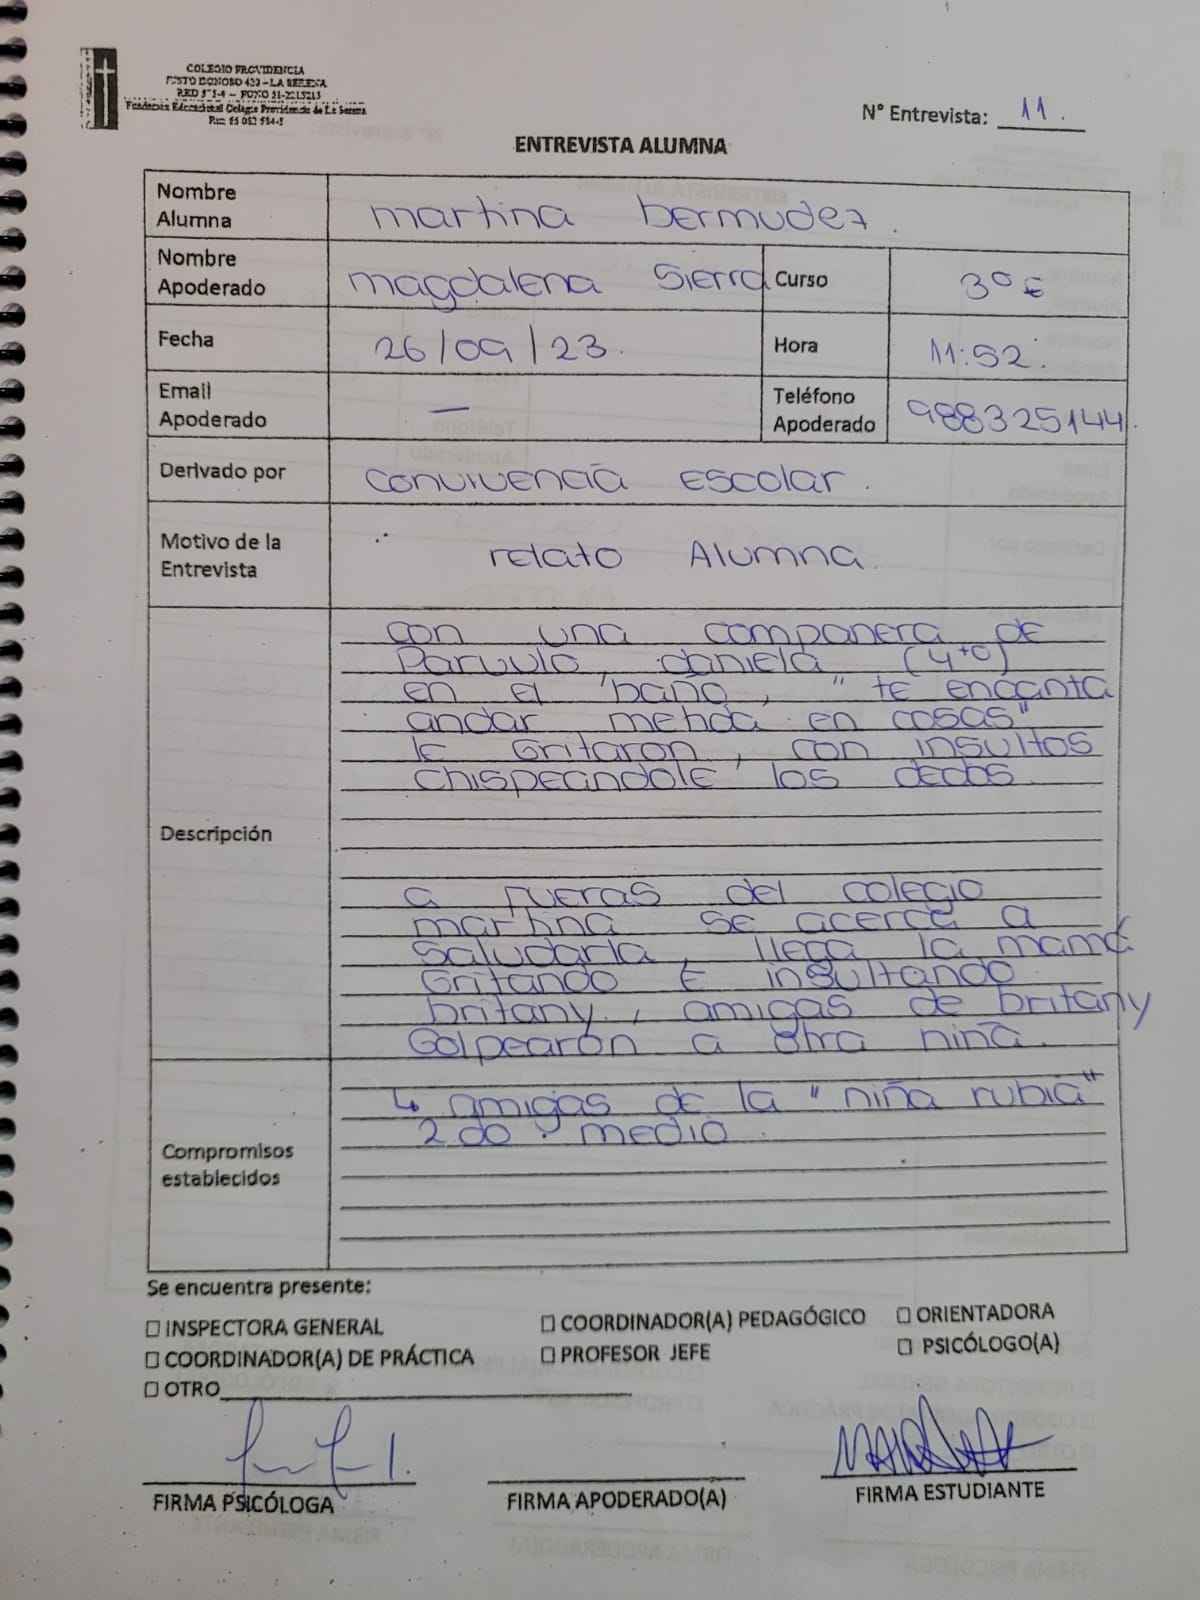 COLEGIO PROVIDENCIA
JUSTO DONOSO 420 – LA SERENA
Fundación Educacional Colegio Providencia de La Serena
N° Entrevista: 11.
ENTREVISTA ALUMNA
Nombre Alumna martina bermudez.
Nombre Apoderado magdalena Sierra Curso 3° E
Fecha 26/09/23. Hora 11:52.
Email Apoderado — Teléfono Apoderado 988325144.
Derivado por convivencia Escolar.
Motivo de la Entrevista relato Alumna.
Descripción
con una companera de
Parvulo, daniela (4to)
en el baño, "te encanta
andar metida en cosas"
le Gritaron, con insultos
chispeandole los dedos
a fueras del colegio
martina se acerca a
Saludarla, llega la mamá
Gritando E insultando
britany, amigas de britany
Golpearon a otra niña.
Compromisos establecidos
↳ amigas de la "niña rubia"
2do medio.
Se encuentra presente:
☐ INSPECTORA GENERAL ☐ COORDINADOR(A) PEDAGÓGICO ☐ ORIENTADORA
☐ COORDINADOR(A) DE PRÁCTICA ☐ PROFESOR JEFE ☐ PSICÓLOGO(A)
☐ OTRO
FIRMA PSICÓLOGA FIRMA APODERADO(A) FIRMA ESTUDIANTE